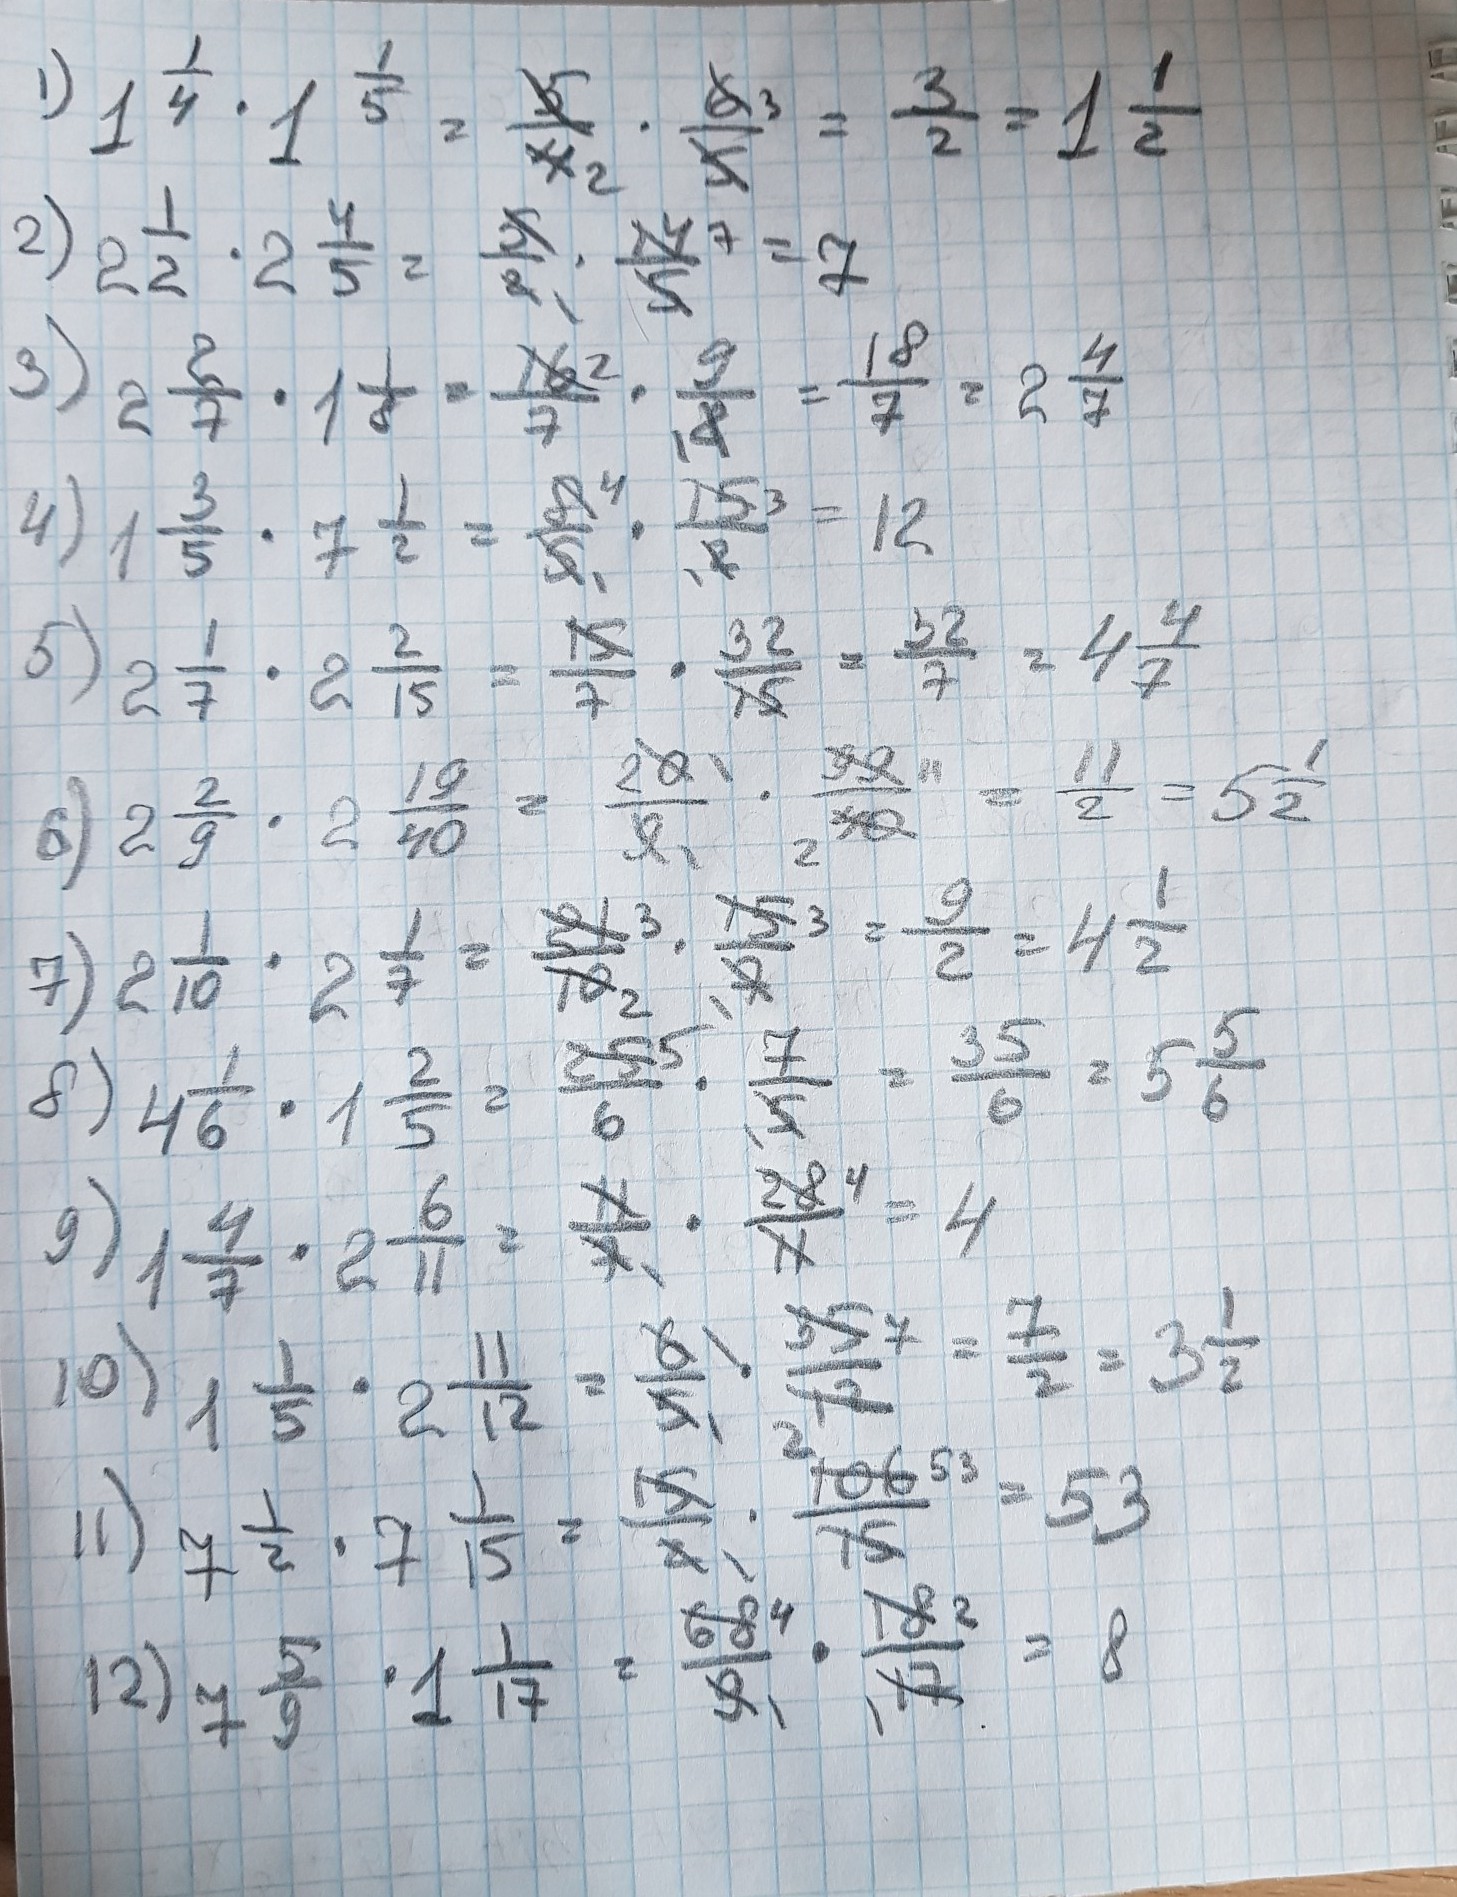 1) 1 1/4 · 1 1/5 = 5/4 2 · 6/5 3 = 3/2 = 1 1/2
2) 2 1/2 · 2 4/5 = 5/2 1 · 14/5 7 = 7
3) 2 2/7 · 1 1/8 = 16/7 2 · 9/8 1 = 18/7 = 2 4/7
4) 1 3/5 · 7 1/2 = 8/5 4 1 · 15/2 3 1 = 12
5) 2 1/7 · 2 2/15 = 15/7 · 32/15 = 32/7 = 4 4/7
6) 2 2/9 · 2 19/40 = 20/9 1 1 · 99/40 11 2 = 11/2 = 5 1/2
7) 2 1/10 · 2 1/7 = 21/10 3 2 · 15/7 3 1 = 9/2 = 4 1/2
8) 4 1/6 · 1 2/5 = 25/6 5 · 7/5 1 = 35/6 = 5 5/6
9) 1 4/7 · 2 6/11 = 11/7 1 · 28/11 4 = 4
10) 1 1/5 · 2 11/12 = 6/5 1 1 · 35/12 7 2 = 7/2 = 3 1/2
11) 7 1/2 · 7 1/15 = 15/2 1 · 106/15 53 = 53
12) 7 5/9 · 1 1/17 = 68/9 4 1 · 18/17 2 1 = 8